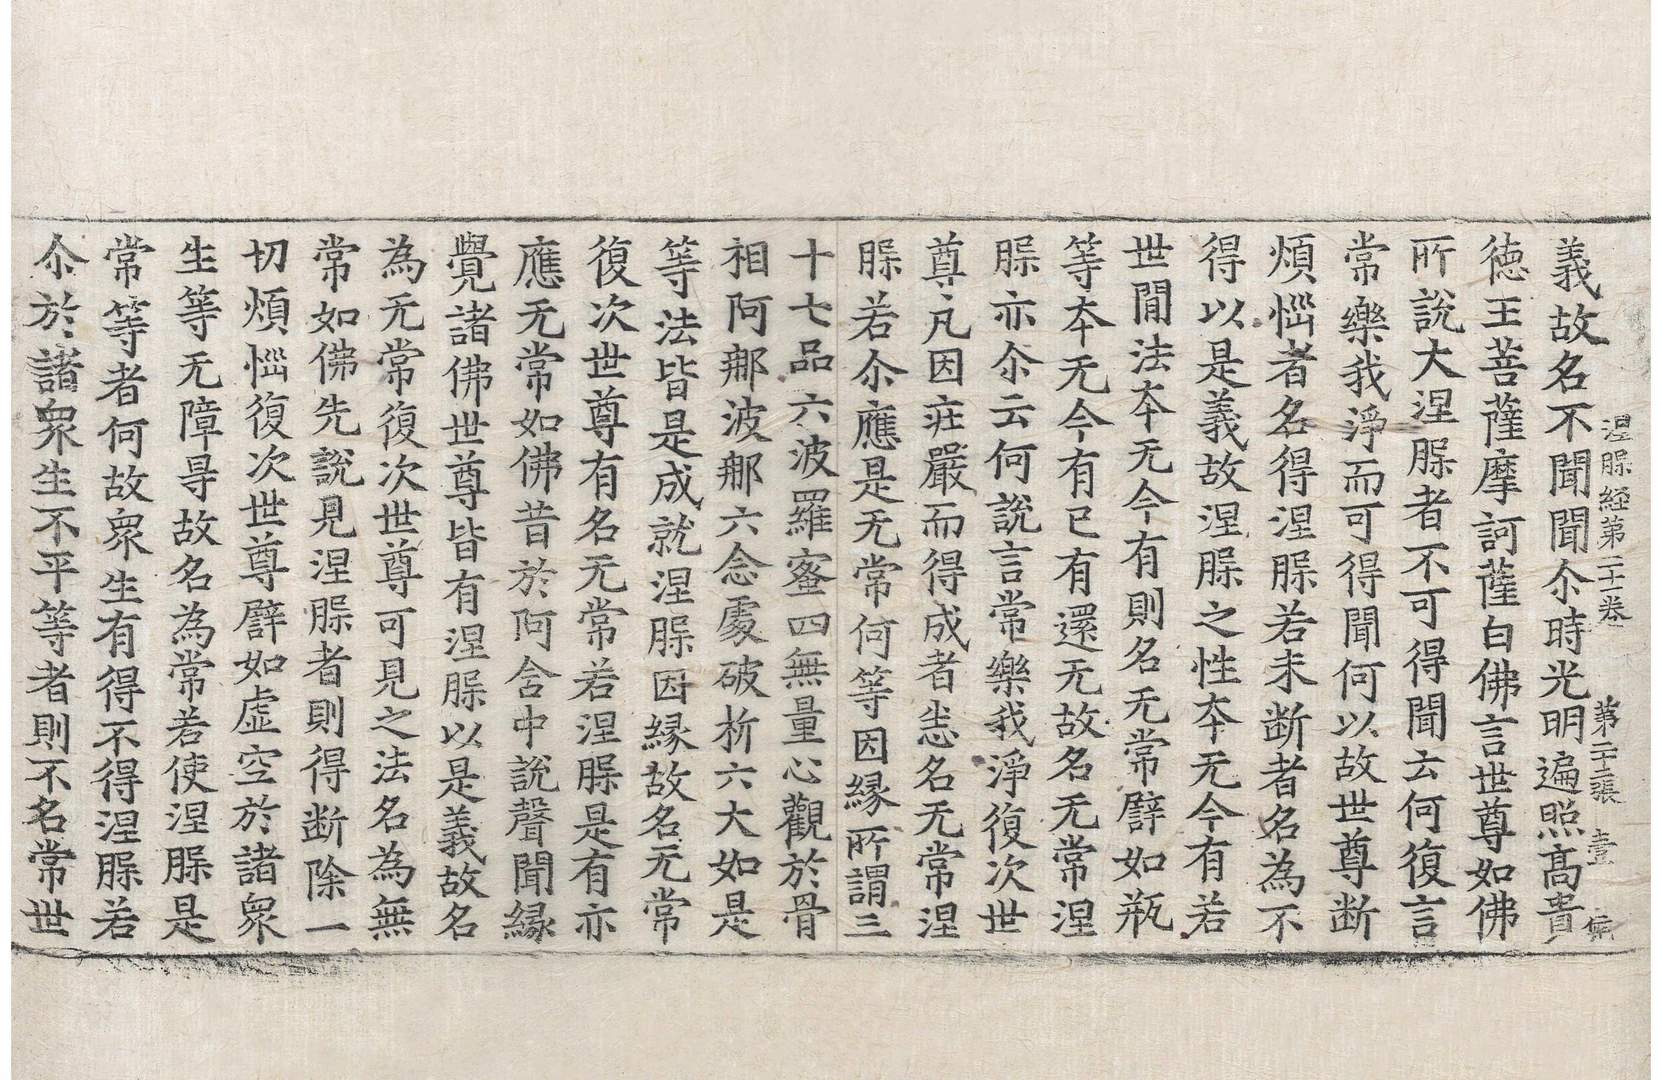 涅𦝫経第二十一卷 第二十二張 壹
義故名不聞聞尒時光明遍照髙貴
徳王菩薩摩訶薩白佛言世尊如佛
所說大涅𦝫者不可得聞云何復言
常樂我淨而可得聞何以故世尊断
煩惱者名得涅𦝫若未断者名為不
得以是義故涅𦝫之性夲无今有若
世閒法夲无今有則名无常譬如瓶
等夲无今有已有還无故名无常涅
𦝫亦尒云何說言常樂我淨復次世
尊凡因莊嚴而得成者悉名无常涅
𦝫若尒應是无常何等因縁所謂三
十七品六波羅蜜四無量心觀於骨
相阿那波那六念處破析六大如是
等法皆是成就涅𦝫因縁故名无常
復次世尊有名无常若涅𦝫是有亦
應无常如佛昔於阿含中說聲聞縁
覺諸佛世尊皆有涅𦝫以是義故名
為无常復次世尊可見之法名為無
常如佛先說見涅𦝫者則得断除一
切煩惱復次世尊譬如虛空於諸衆
生等无障㝵故名為常若使涅𦝫是
常等者何故衆生有得不得涅𦝫若
尒於諸衆生不平等者則不名常世